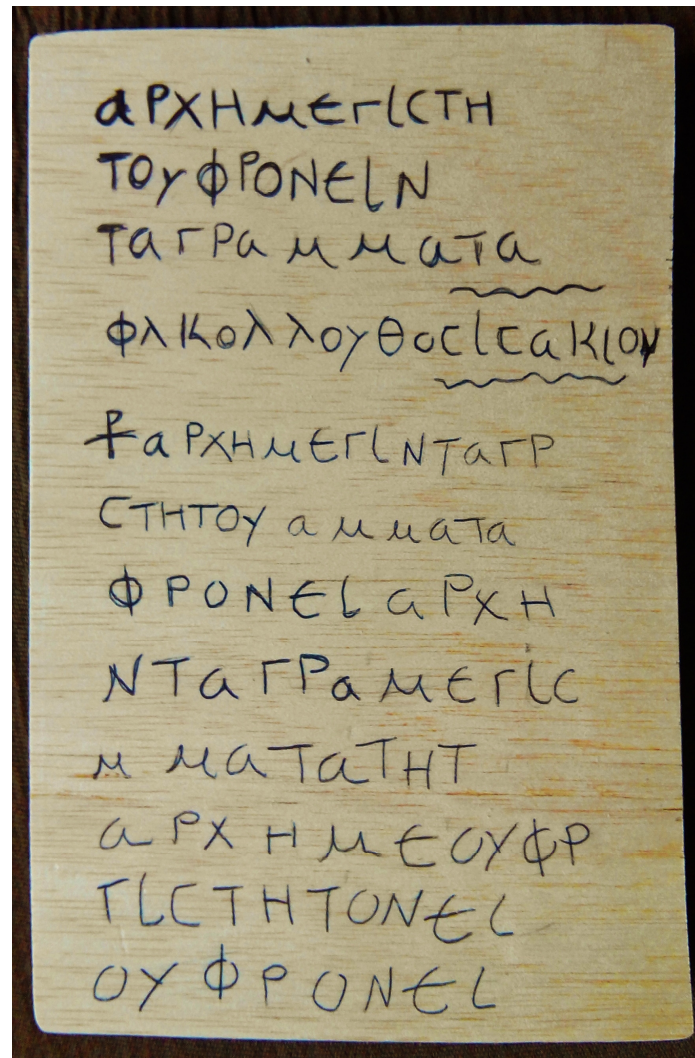 αΡΧΗΜΕΓΙCΤΗ
ΤΟΥΦΡΟΝΕΙΝ
ΤαΓΡαΜΜαΤα
ΦλΚολλουθοCΙCαΚΙΟΝ
⳨αΡΧΗΜΕΓΙΝΤαΓΡ
CΤΗΤΟΥ αΜΜαΤα
ΦΡΟΝΕΙ αΡΧΗ
ΝΤαΓΡαΜΕΓΙC
ΜΜαΤαΤΗΤ
αΡΧΗΜΕΟΥΦΡ
ΓΙCΤΗΤΟΝΕΙ
ΟΥΦΡΟΝΕΙ